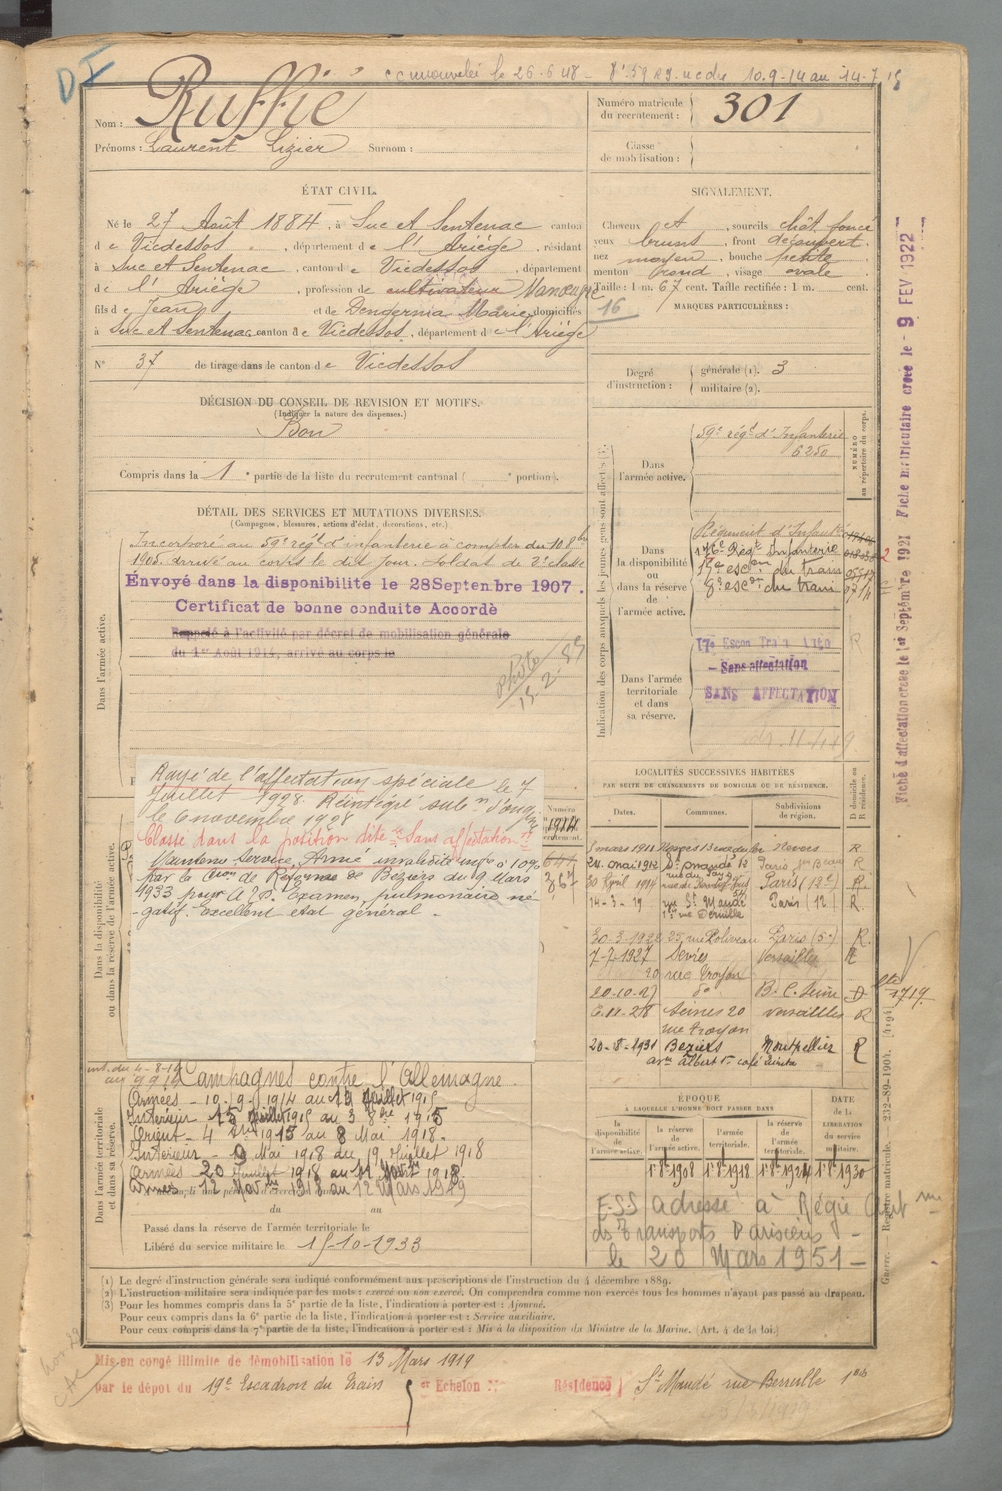 DI
renouvelée le 26-6-48 - 10.9-14 au 14-7-15
Nom : Ruffié
Prénoms : Laurent Lizier Surnom :
Numéro matricule du recrutement : 301
Classe de mobilisation :
ÉTAT CIVIL.
Né le 27 Août 1884, à Suc et Sentenac canton
de Vicdessos, département de l'Ariége, résidant
à Suc et Sentenac, canton de Vicdessos, département
de l'Ariége, profession de cultivateur Manœuvre
fils de Jean et de Dengerma Marie domiciliés
à Suc et Sentenac canton de Vicdessos, département de l'Ariége
N° 37 de tirage dans le canton de Vicdessos
SIGNALEMENT.
Cheveux et, sourcils chât. foncé
yeux bruns, front découvert.
nez moyen, bouche petite
menton rond, visage ovale
Taille : 1 m. 67 cent. Taille rectifiée : 1 m. cent.
16
MARQUES PARTICULIÈRES :
Degré d'instruction : générale (1). 3
militaire (2).
DÉCISION DU CONSEIL DE REVISION ET MOTIFS.
(Indiquer la nature des dispenses.)
Bon
Compris dans la 1e partie de la liste du recrutement cantonal ( e portion).
DÉTAIL DES SERVICES ET MUTATIONS DIVERSES.
(Campagnes, blessures, actions d'éclat, décorations, etc.)
Dans l'armée active.
Incorporé au 59e régt d'infanterie à compter du 10 8bre
1905. arrivé au corps le dit jour. Soldat de 2e classe
Envoyé dans la disponibilité le 28 Septembre 1907.
Certificat de bonne conduite Accordé
Rappelé à l'activité par décret de mobilisation générale
du 1er Août 1914, arrivé au corps le
Indication des corps auxquels les jeunes gens sont affectés (3).
NUMÉRO au répertoire du corps.
Dans l'armée active.
59e régt d'Infanterie
6250
Dans la disponibilité ou dans la réserve de l'armée active.
Régiment d'Infanterie
176e Régt Infanterie
17e escon du train
8e escon du train
Dans l'armée territoriale et dans sa réserve.
17e Escon Train Auto
- Sans affectation
SANS AFFECTATION
Fiche d'affectation créée le 1er Septembre 1921 Fiche matriculaire créée le - 9 FEV 1922
Dans la disponibilité ou dans la réserve de l'armée active.
Rayé de l'affectation spéciale le 7
juillet 1928. Réintégré
le 6 novembre 1928
Classé dans la position dite "Sans affectation"
Maintenu Service Armé invalidité infre à 10%
par la Con de Réforme de Béziers du 9 Mars
1933 pour Examen pulmonaire né-
-gatif. Excellent état général.
LOCALITÉS SUCCESSIVES HABITÉES
PAR SUITE DE CHANGEMENTS DE DOMICILE OU DE RÉSIDENCE.
Dates. Communes. Subdivisions de région. D domicile ou R résidence.
mars 1911 Nevers R
24 mai 1912 St Mandé 12 Paris R
30 April 1914 Paris (12e) R.
14-3-19 St Mandé Paris (12) R
30-3-1922 35, rue Poliveau Paris (5e) R.
7-7-1927 Sèvres Versailles R
20 rue Troyon
20-10-27 do B. C. Seine D
6-11-28 Sèvres 20 Versailles R
rue Troyon
20-8-1931 Béziers Montpellier R
Dans l'armée territoriale et dans sa réserve.
int. du 4-8-14
au 9 9 14 Campagnes contre l'Allemagne.
Armées - 10-9-1914 au 14 Juillet 1915
Intérieur - 15 Juillet 1915 au 3 8bre 1915
Orient - 4 8bre 1915 au 8 Mai 1918.
Intérieur - 9 Mai 1918 au 19 Juillet 1918
Armées - 20 Juillet 1918 au 11 Novbre 1918
Armées - 12 Novbre 1918 au 12 Mars 1919
du au
Passé dans la réserve de l'armée territoriale le
Libéré du service militaire le 15-10-1933
ÉPOQUE
À LAQUELLE L'HOMME DOIT PASSER DANS
la disponibilité de l'armée active. la réserve de l'armée active. l'armée territoriale. la réserve de l'armée territoriale.
DATE de la LIBÉRATION du service militaire.
1er 8bre 1908 1er 8bre 1918 1er 8bre 1924 1er 8bre 1930
ESS adressé à Régie Auto
des Transports Parisiens -
le 20 Mars 1951 -
Guerre. — Registre matricule. — 232-89-1904. [4194]
(1) Le degré d'instruction générale sera indiqué conformément aux prescriptions de l'instruction du 4 décembre 1889.
(2) L'instruction militaire sera indiquée par les mots : exercé ou non exercé. On comprendra comme non exercés tous les hommes n'ayant pas passé au drapeau.
(3) Pour les hommes compris dans la 5e partie de la liste, l'indication à porter est : Ajourné.
Pour ceux compris dans la 6e partie de la liste, l'indication à porter est : Service auxiliaire.
Pour ceux compris dans la 7e partie de la liste, l'indication à porter est : Mis à la disposition du Ministre de la Marine. (Art. 4 de la loi.)
Mis en congé illimité de démobilisation le 13 Mars 1919
par le dépôt du 19e Escadron du Train er Echelon N° Résidence St Mandé rue